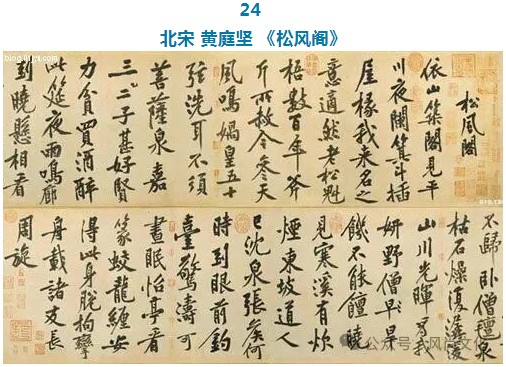 24
北宋 黄庭坚 《松风阁》
松風閣
依山築閣見平
川夜闌箕斗插
屋椽我來名之
意適然老松魁
梧數百年斧
斤所赦今參天
風鳴媧皇五十
弦洗耳不須
菩薩泉嘉
三二子甚好賢
力貧買酒醉
此筵夜雨鳴廊
到曉懸相看
不歸臥僧氈泉
枯石燥復潺湲
山川光暉為我
妍野僧早旱
饑不能饘曉
見寒溪有炊
煙東坡道人
已沈泉張侯何
時到眼前釣
臺驚濤可
晝眠怡亭看
篆蛟龍纏安
得此身脫拘攣
舟載諸友長
周旋
公众号